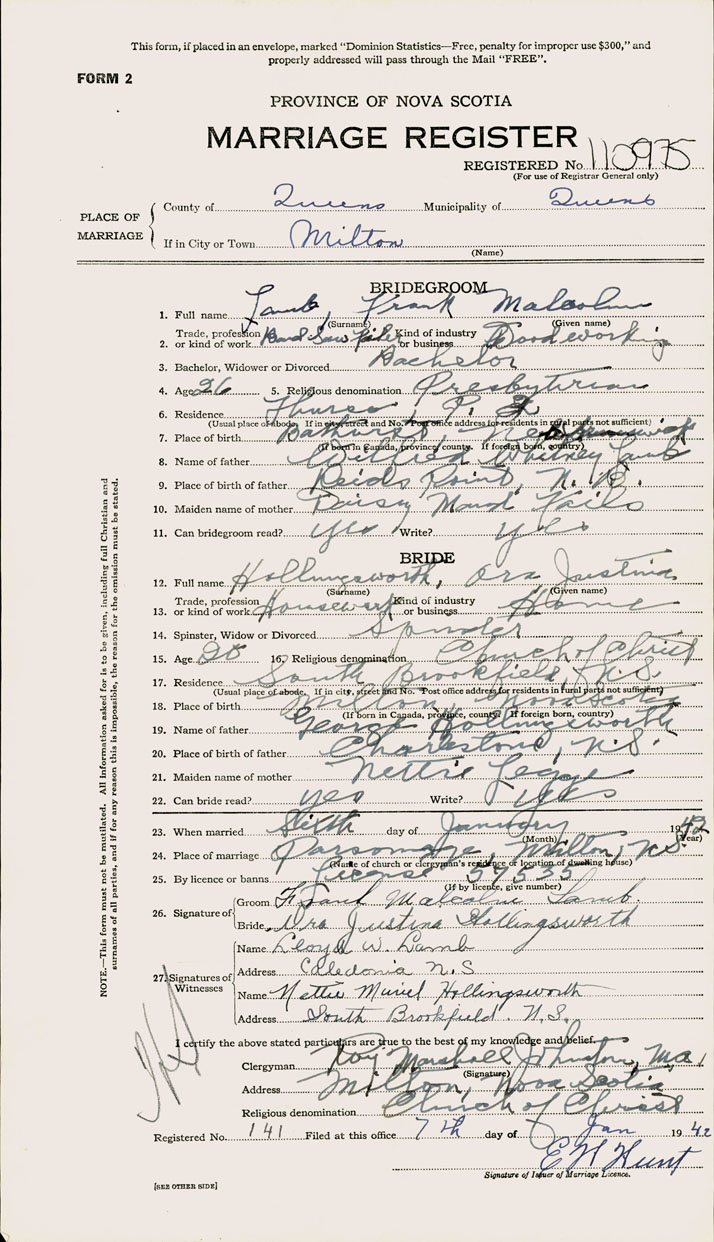 This form, if placed in an envelope, marked "Dominion Statistics—Free, penalty for improper use $300," and
properly addressed will pass through the Mail "FREE".
FORM 2
PROVINCE OF NOVA SCOTIA
MARRIAGE REGISTER
REGISTERED No. 110975
(For use of Registrar General only)
PLACE OF MARRIAGE
County of Queens Municipality of Queens
If in City or Town Milton
(Name)
BRIDEGROOM
1. Full name Lamb, Frank Malcolm
(Surname) (Given name)
2. Trade, profession or kind of work Band Saw filer Kind of industry or business Woodworking
3. Bachelor, Widower or Divorced Bachelor
4. Age 26 5. Religious denomination Presbyterian
6. Residence Thurso, P. Q.
(Usual place of abode. If in city, street and No. Post office address for residents in rural parts not sufficient)
7. Place of birth Bathurst, New Brunswick
(If born in Canada, province, county. If foreign born, country)
8. Name of father Whitney Lamb
9. Place of birth of father Reids Point, N. B.
10. Maiden name of mother Daisy Maud
11. Can bridegroom read? yes Write? yes
BRIDE
12. Full name Hollingsworth, Ora Justina
(Surname) (Given name)
13. Trade, profession or kind of work Housework Kind of industry or business Home
14. Spinster, Widow or Divorced Spinster
15. Age 20 16. Religious denomination Church of Christ
17. Residence South Brookfield, N.S.
(Usual place of abode. If in city, street and No. Post office address for residents in rural parts not sufficient)
18. Place of birth Milton, Nova Scotia
(If born in Canada, province, county. If foreign born, country)
19. Name of father George Hollingsworth
20. Place of birth of father Charleston, N.S.
21. Maiden name of mother Nettie
22. Can bride read? yes Write? yes
23. When married Sixth day of January 1942
(Month) (Year)
24. Place of marriage Parsonage, Milton, N.S.
(Name of church or clergyman's residence or location of dwelling house)
25. By licence or banns License 59535
(If by licence, give number)
26. Signature of
Groom Frank Malcolm Lamb.
Bride Ora Justina Hollingsworth
27. Signatures of Witnesses
Name Lloyd W. Lamb
Address Caledonia N.S
Name Nettie Muriel Hollingsworth
Address South Brookfield. N.S.
I certify the above stated particulars are true to the best of my knowledge and belief.
Clergyman Roy Marshall Johnston, M.A.
(Signature)
Address Milton, Nova Scotia
Religious denomination Church of Christ
Registered No. 141 Filed at this office 7th day of Jan 1942
E H Hunt
Signature of Issuer of Marriage Licence.
[SEE OTHER SIDE]
NOTE.—This form must not be mutilated. All information asked for is to be given, including full Christian and
surnames of all parties, and if for any reason this is impossible, the reason for the omission must be stated.